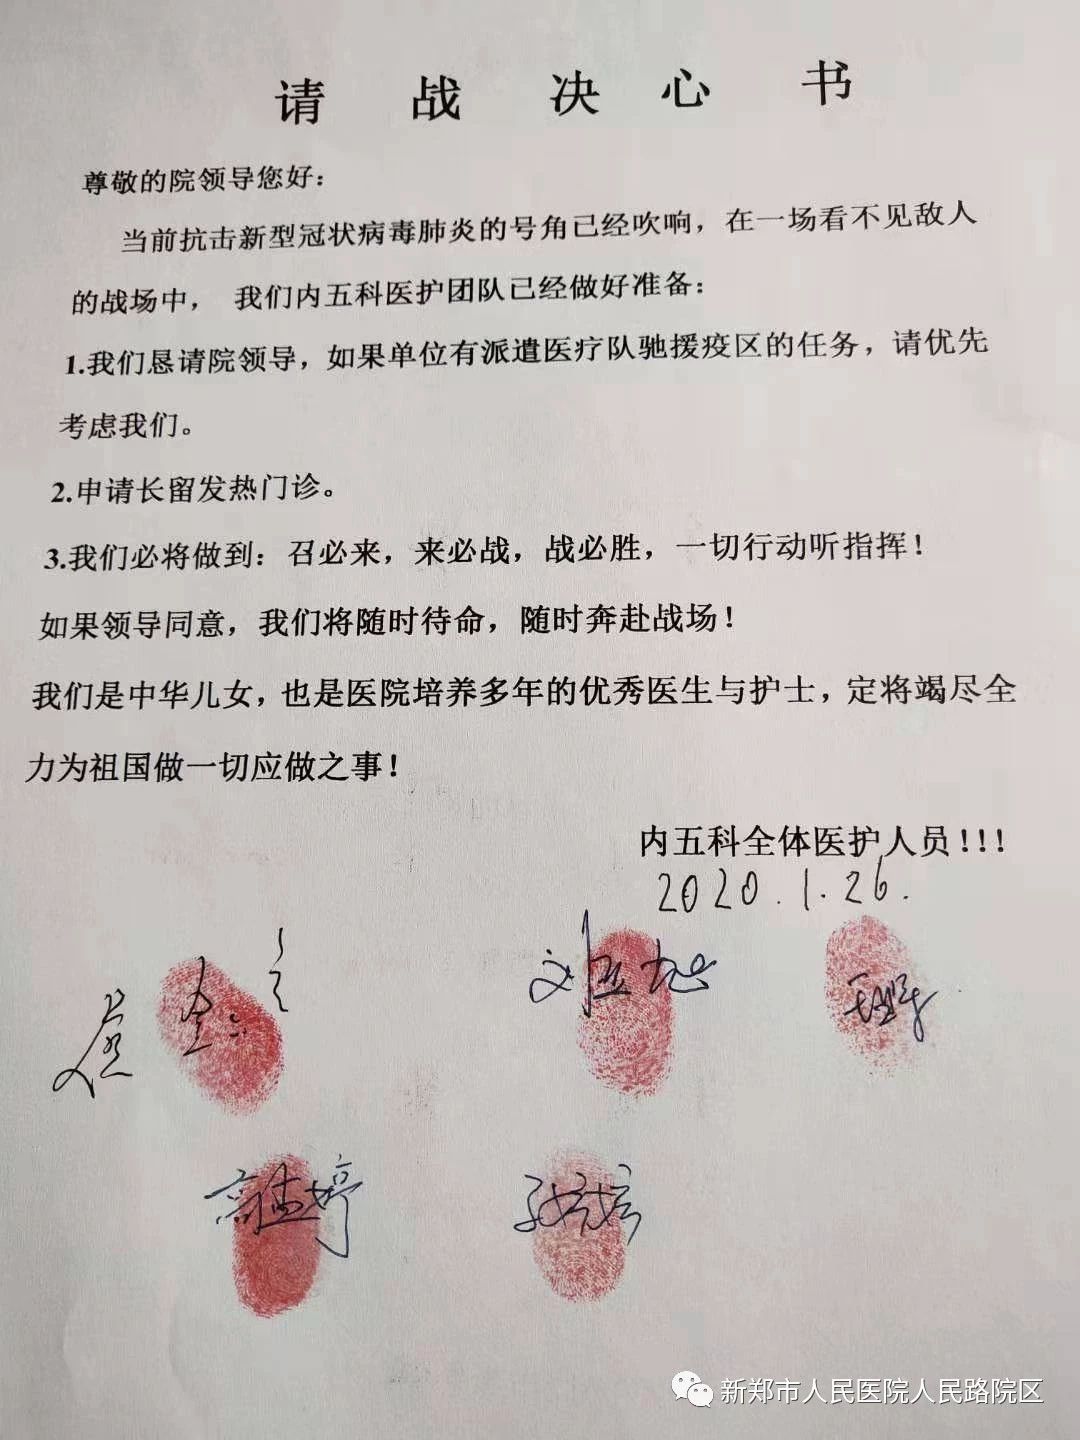 请战决心书
尊敬的院领导您好：
当前抗击新型冠状病毒肺炎的号角已经吹响，在一场看不见敌人
的战场中， 我们内五科医护团队已经做好准备：
1.我们恳请院领导，如果单位有派遣医疗队驰援疫区的任务，请优先
考虑我们。
2.申请长留发热门诊。
3.我们必将做到：召必来，来必战，战必胜，一切行动听指挥！
如果领导同意，我们将随时待命，随时奔赴战场！
我们是中华儿女，也是医院培养多年的优秀医生与护士，定将竭尽全
力为祖国做一切应做之事！
内五科全体医护人员！！！
2020.1.26.
高孟婷
新郑市人民医院人民路院区